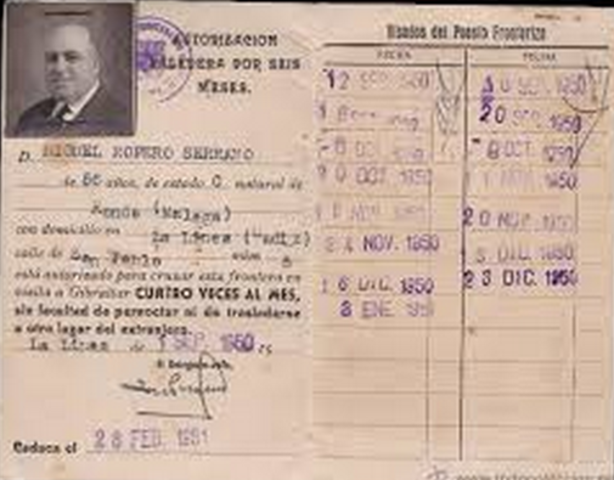 AUTORIZACION
VALEDERA POR SEIS
MESES.
D. MIGUEL ROPERO SERRANO
de 66 años, de estado C. natural de
Ronda (Malaga)
con domicilio en La Linea (Cadiz)
calle de San Pablo núm. 8
está autorizado para cruzar esta frontera en
visita a Gibraltar CUATRO VECES AL MES,
sin facultad de pernoctar ni de trasladarse
a otro lugar del extranjero.
La Linea de 1 SEP. 1950
Caduca el 28 FEB. 1951
Visados del Puesto Fronterizo
FECHA FECHA
12 SEP. 1950
20 SEP. 1950
OCT. 1950
OCT. 1950
20 NOV. 1950
24 NOV. 1950
DIC. 1950
16 DIC. 1950 23 DIC. 1950
8 ENE. 1951